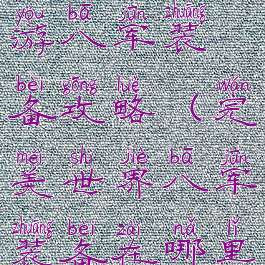 yóu bā jūn zhuāng
游八军装
bèi gōng lüè wán
备攻略（完
měi shì jiè bā jūn
美世界八军
zhuāng bèi zài nǎ lǐ
装备在哪里